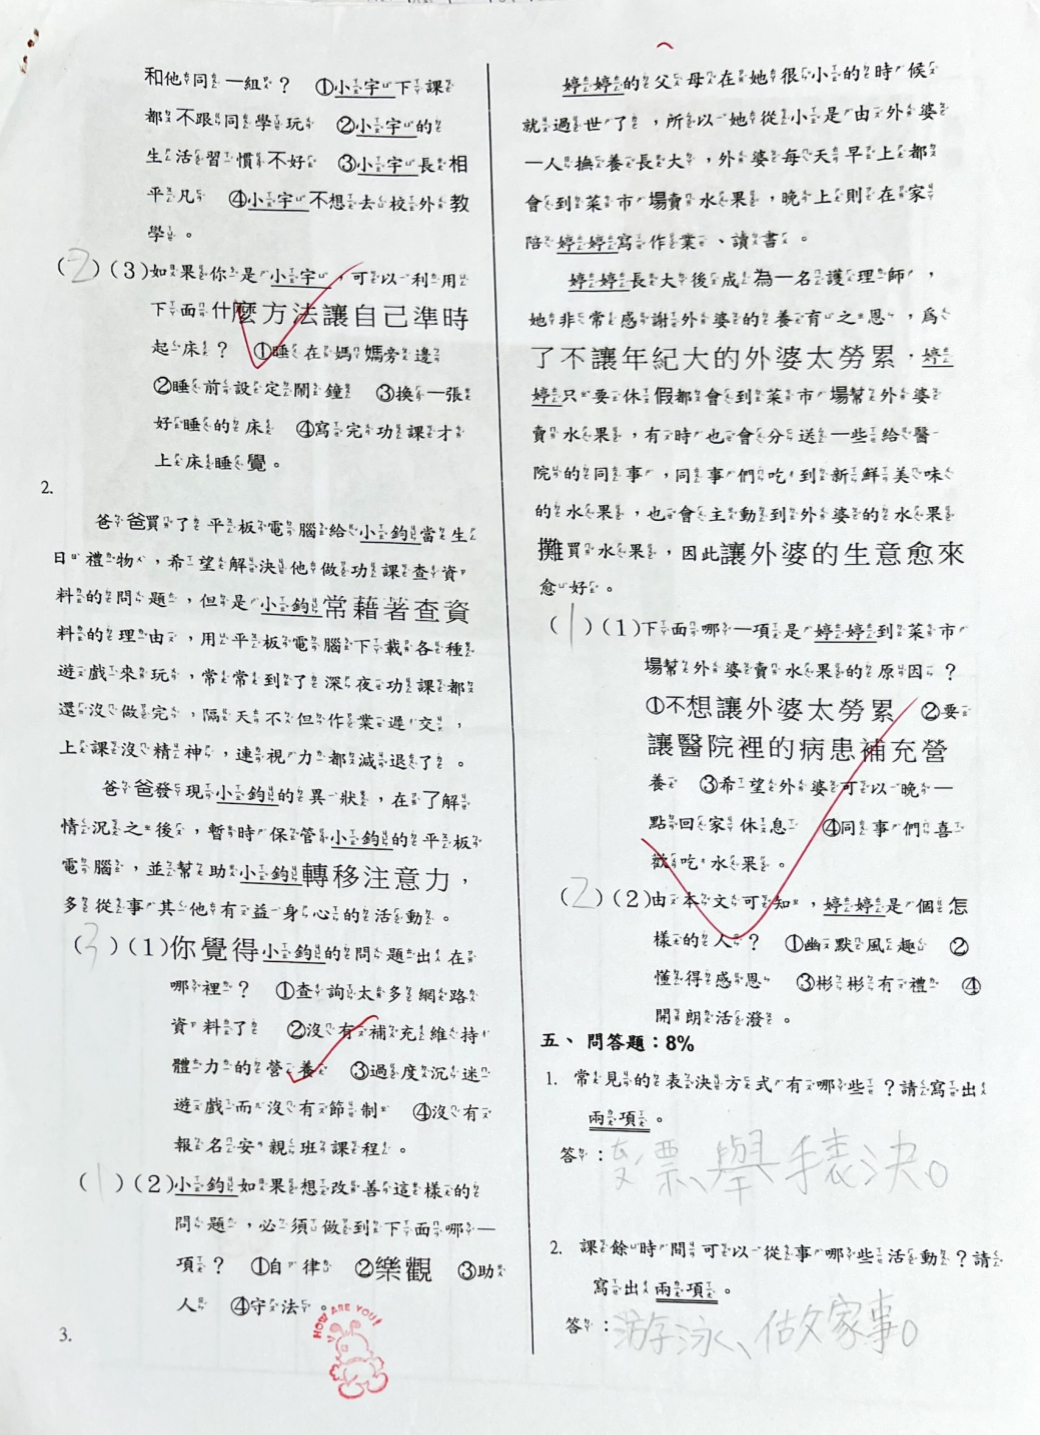 和他同一組？　①小宇下課
都不跟同學玩　②小宇的
生活習慣不好　③小宇長相
平凡　④小宇不想去校外教
學。
(2)(3)如果你是小宇，可以利用
下面什麼方法讓自己準時
起床？　①睡在媽媽旁邊
②睡前設定鬧鐘　③換一張
好睡的床　④寫完功課才
上床睡覺。
2.
爸爸買了平板電腦給小鈞當生
日禮物，希望解決他做功課查資
料的問題，但是小鈞常藉著查資
料的理由，用平板電腦下載各種
遊戲來玩，常常到了深夜功課都
還沒做完，隔天不但作業遲交，
上課沒精神，連視力都減退了。
爸爸發現小鈞的異狀，在了解
情況之後，暫時保管小鈞的平板
電腦，並幫助小鈞轉移注意力，
多從事其他有益身心的活動。
(3)(1)你覺得小鈞的問題出在
哪裡？　①查詢太多網路
資料了　②沒有補充維持
體力的營養　③過度沉迷
遊戲而沒有節制　④沒有
報名安親班課程。
(1)(2)小鈞如果想改善這樣的
問題，必須做到下面哪一
項？　①自律　②樂觀　③助
人　④守法。
HOW ARE YOU!
3.
婷婷的父母在她很小的時候
就過世了，所以她從小是由外婆
一人撫養長大，外婆每天早上都
會到菜市場賣水果，晚上則在家
陪婷婷寫作業、讀書。
婷婷長大後成為一名護理師，
她非常感謝外婆的養育之恩，為
了不讓年紀大的外婆太勞累，婷
婷只要休假都會到菜市場幫外婆
賣水果，有時也會分送一些給醫
院的同事，同事們吃到新鮮美味
的水果，也會主動到外婆的水果
攤買水果，因此讓外婆的生意愈來
愈好。
(1)(1)下面哪一項是婷婷到菜市
場幫外婆賣水果的原因？
①不想讓外婆太勞累　②要
讓醫院裡的病患補充營
養　③希望外婆可以晚一
點回家休息　④同事們喜
歡吃水果。
(2)(2)由本文可知，婷婷是個怎
樣的人？　①幽默風趣　②
懂得感恩　③彬彬有禮　④
開朗活潑。
五、問答題：8%
1. 常見的表決方式有哪些？請寫出
兩項。
答：ㄊㄡˊ票、舉手表決。
2. 課餘時間可以從事哪些活動？請
寫出兩項。
答：游泳、做家事。